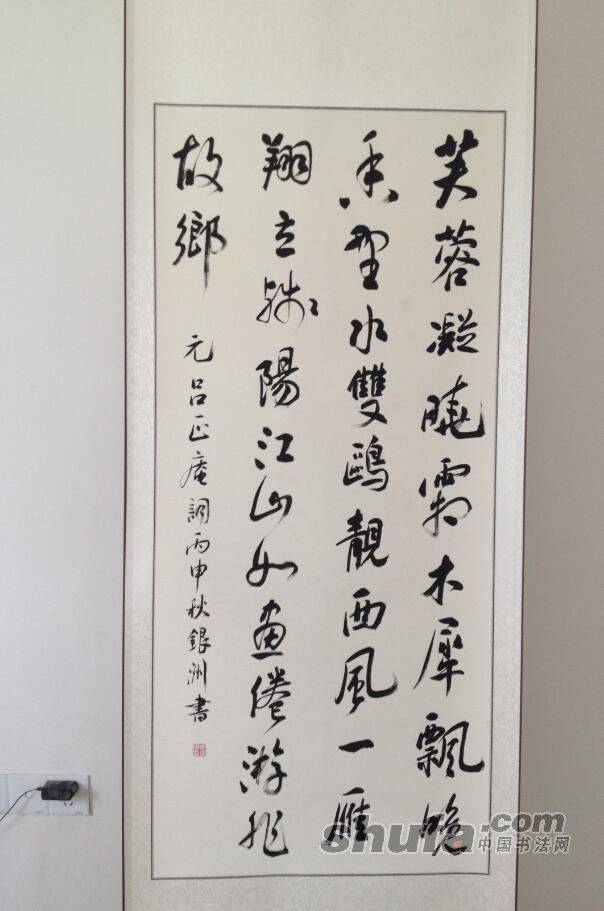 芙蓉凝曉霜木犀飄晚
香野水雙鷗靚西風一雁
翔立殘陽江山如畫倦游非
故鄉
元呂正庵詞丙申秋銀洲書
shufa.com
中国书法网